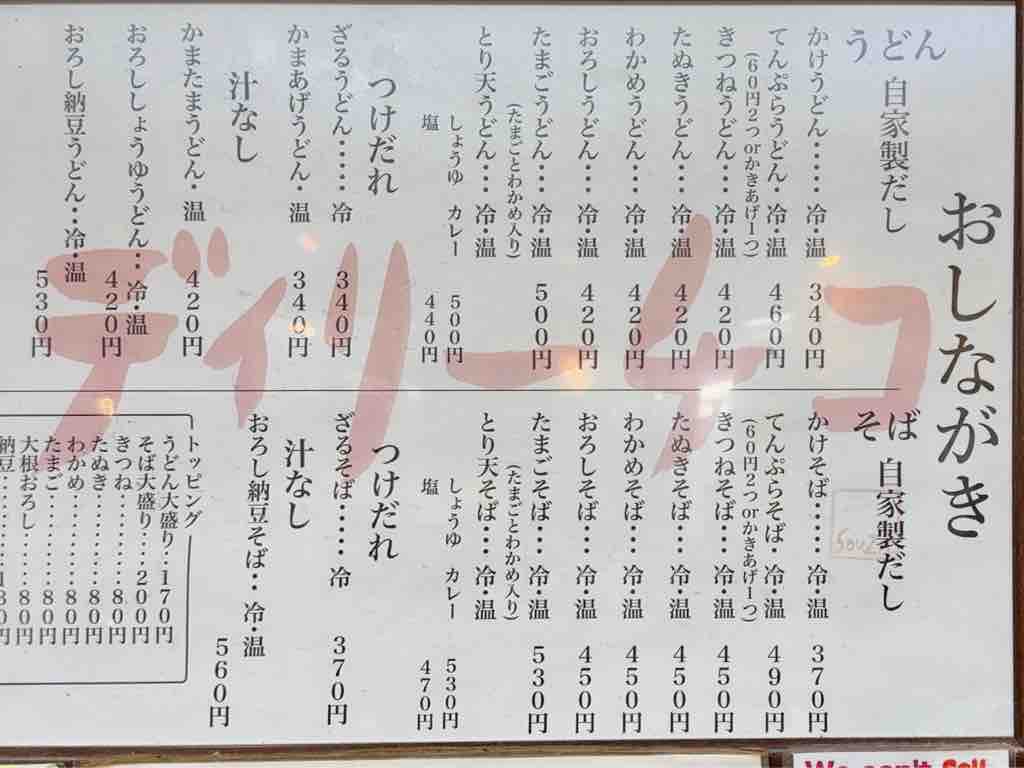 おしながき
うどん 自家製だし
かけうどん・・・・・ 冷・温 340円
てんぷらうどん・ 冷・温 460円
(60円2つorかきあげ1つ)
きつねうどん・・・ 冷・温 420円
たぬきうどん・・・ 冷・温 420円
わかめうどん・・・ 冷・温 420円
おろしうどん・・・ 冷・温 420円
たまごうどん・・・ 冷・温 500円
(たまごとわかめ入り)
とり天うどん・・・ 冷・温
しょうゆ カレー 500円
塩 440円
つけだれ
ざるうどん・・・・・ 冷 340円
かまあげうどん・ 温 340円
汁なし
かまたまうどん・ 温 420円
おろししょうゆうどん・・ 冷・温 420円
おろし納豆うどん・・冷・温 530円
そば 自家製だし
かけそば・・・・ 冷・温 370円
てんぷらそば・ 冷・温 490円
(60円2つorかきあげ1つ)
きつねそば・・・ 冷・温 450円
たぬきそば・・・ 冷・温 450円
わかめそば・・・ 冷・温 450円
おろしそば・・・ 冷・温 450円
たまごそば・・・ 冷・温 530円
(たまごとわかめ入り)
とり天そば・・・ 冷・温
しょうゆ カレー 530円
塩 470円
つけだれ
ざるそば・・・・・ 冷 370円
汁なし
おろし納豆そば・・ 冷・温 560円
トッピング
うどん大盛り・・170円
そば大盛り・・200円
きつね・・・・・・・80円
たぬき・・・・・・・80円
わかめ・・・・・・・80円
たまご・・・・・・・80円
大根おろし・・・・80円
納豆
ディリーチコ
We can't Sell